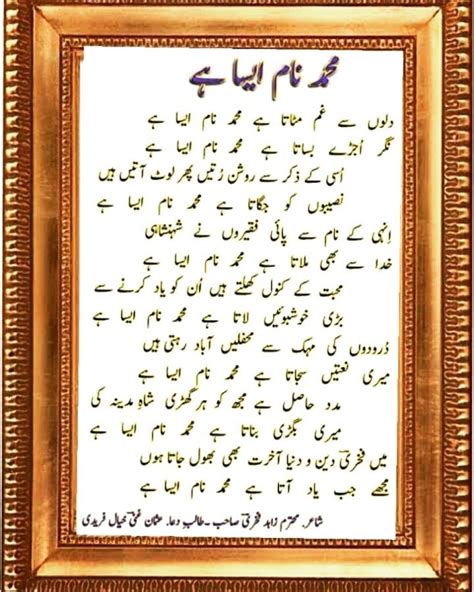 محمد نام ایسا ہے
دلوں سے غم مٹاتا ہے محمد نام ایسا ہے
نگر اُجڑے بساتا ہے محمد نام ایسا ہے
اُسی کے ذکر سے روشن رُتیں پھر لوٹ آتیں ہیں
نصیبوں کو جگاتا ہے محمد نام ایسا ہے
اِنہی کے نام سے پائی فقیروں نے شہنشاہی
خدا سے بھی ملاتا ہے محمد نام ایسا ہے
محبت کے کنول کھلتے ہیں اُن کو یاد کرنے سے
بڑی خوشبوئیں لاتا ہے محمد نام ایسا ہے
دُرودوں کی مہک سے محفلیں آباد رہتی ہیں
میری نعتیں سجاتا ہے محمد نام ایسا ہے
مدد حاصل ہے مجھ کو ہر گھڑی شاہِ مدینہ کی
میری بگڑی بناتا ہے محمد نام ایسا ہے
میں فخریؔ دین و دنیا آخرت بھی بھول جاتا ہوں
مجھے جب یاد آتا ہے محمد نام ایسا ہے
شاعر۔ محترم زاہد فخریؔ صاحب ۔طالب دعا۔ عثمان غنی خیال فریدی